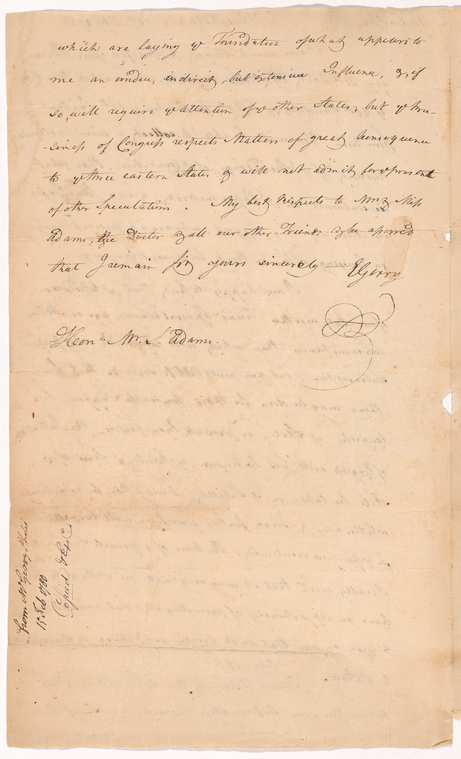 which are laying ye Foundation of what appears to
me an undue, indirect, but extensive Influence, & if
so, will require ye attention of ye other States; but ye bu-
siness of Congress respects Matters of great Consequence
to ye three eastern States & will not admit for ye present
of other Speculations. My best Respects to Mrs & Miss
Adams, the Doctor & all our other Friends & be assured
that I remain sir yours sincerely EGerry
Honl. Mr. S Adams.
from Mr Gerry
15 Feb 1780
Copied